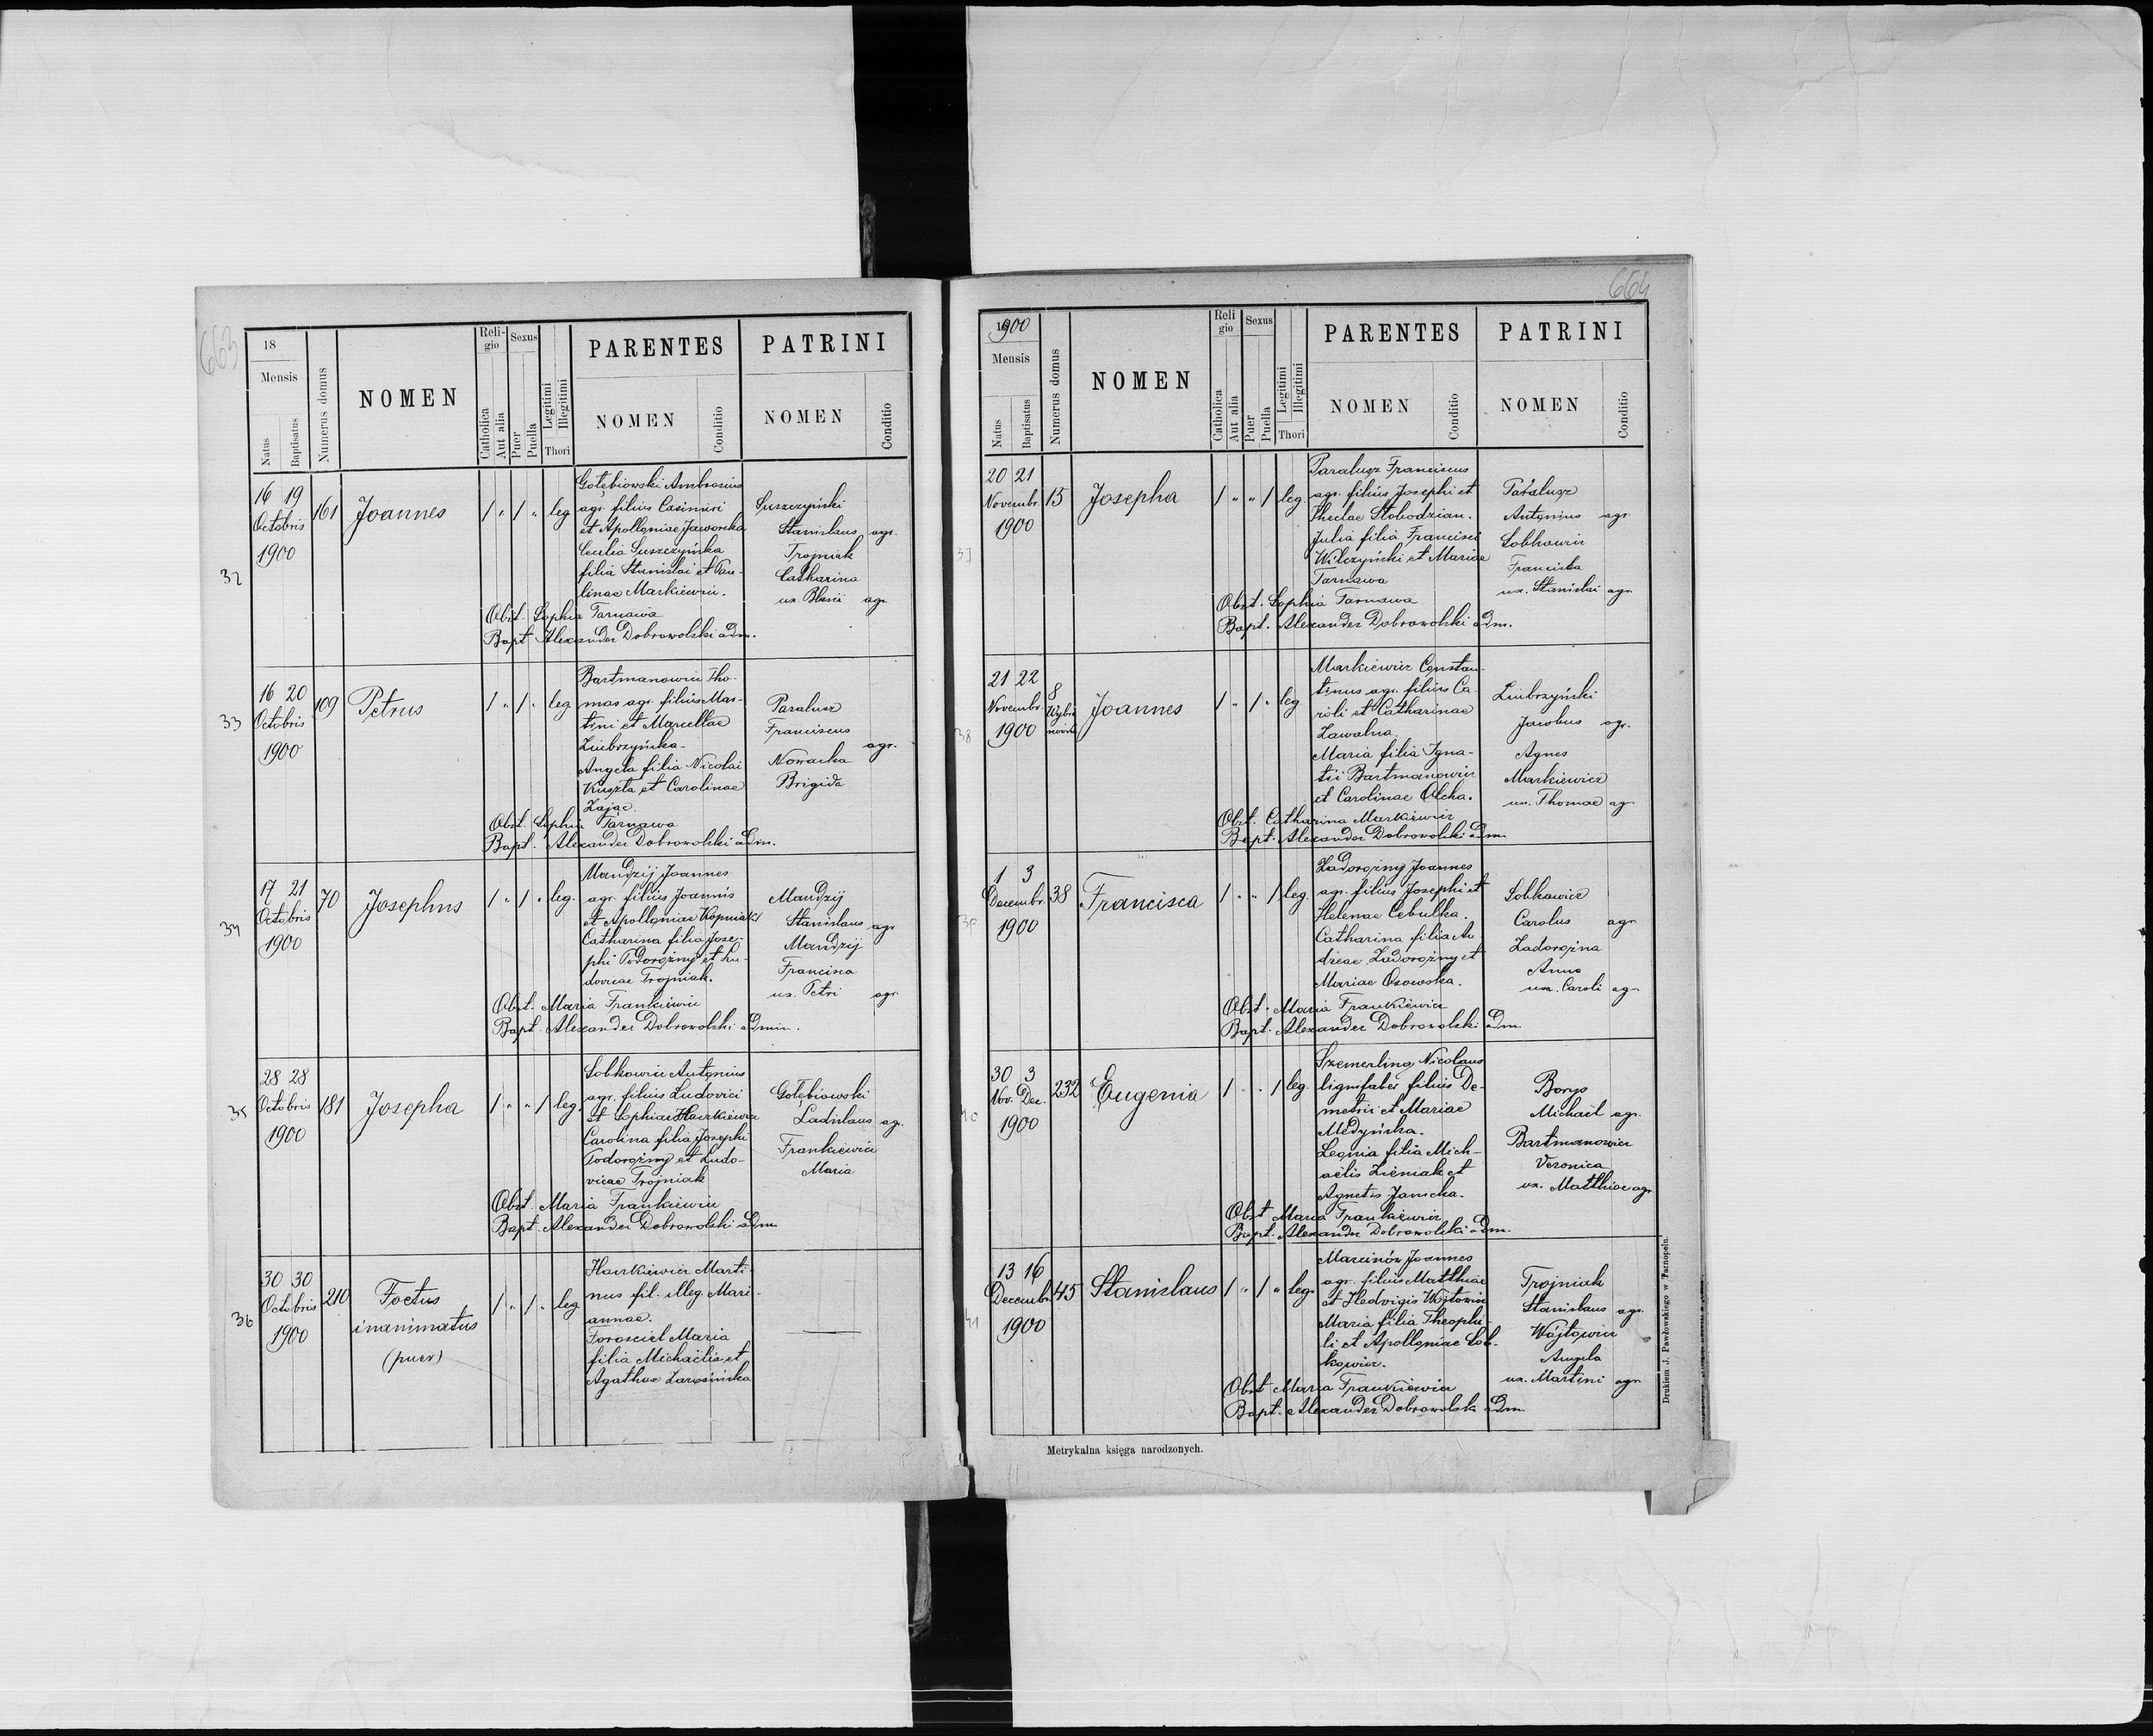 663
18
Mensis
Natus
Baptisatus
Numerus domus
NOMEN
Reli-
gio
Catholica
Aut alia
Sexus
Puer
Puella
Legitimi
Illegitimi
Thori
PARENTES
NOMEN
Conditio
PATRINI
NOMEN
Conditio
32
16 19
Octobris
1900
161
Joannes
1 " 1 " leg
Gołębiowski Ambrosius
agr. filius Casimiri
et Apolloniae Jaworska
Cecilia Suszczyńska
filia Stanislai et Pau-
linae Markiewicz.
Suszczyński
Stanislaus agr.
Trojniak
Catharina
ux. Blasii agr.
Obst. Sophia Tarnawa
Bapt. Alexander Dobrowolski adm.
33
16 20
Octobris
1900
109
Petrus
1 " 1 " leg
Bartmanowicz Tho-
mas agr. filius Mar-
tini et Marcellae
Zimbrzyńska.
Angela filia Nicolai
Kuszta et Carolinae
Zając.
Paralusz
Franciscus
agr.
Nowacka
Brigida
Obst. Sophia Tarnawa
Bapt. Alexander Dobrowolski adm.
34
17 21
Octobris
1900
70
Josephus
1 " 1 " leg.
Mandzij Joannes
agr. filius Joannis
et Apolloniae Kopniak
Catharina filia Jose-
phi Podorożny et Lu-
dovicae Trojniak.
Mandzij
Stanislaus agr
Mandzij
Francisca
ux. Petri agr
Obst. Maria Frankiewicz
Bapt. Alexander Dobrowolski admin.
35
28 28
Octobris
1900
181
Josepha
1 " " 1 leg.
Sobkowicz Antonius
agr. filius Ludovici
et Sophiae Hawkiewicz
Carolina filia Josephi
Podorożny et Ludo-
vicae Trojniak
Gołębiowski
Ladislaus agr.
Frankiewicz
Maria
Obst. Maria Frankiewicz
Bapt. Alexander Dobrowolski adm.
36
30 30
Octobris
1900
210
Foetus
inanimatus
(puer)
1 " 1 " leg
Hawkiewicz Marti-
nus fil. illeg. Mari-
annae.
Maria
filia Michaëlis et
Agathae
664
1900
Mensis
Natus
Baptisatus
Numerus domus
NOMEN
Reli
gio
Catholica
Aut alia
Sexus
Puer
Puella
Legitimi
Illegitimi
Thori
PARENTES
NOMEN
Conditio
PATRINI
NOMEN
Conditio
37
20 21
Novembr.
1900
15
Josepha
1 " " 1 leg.
Paralusz Franciscus
agr. filius Josephi et
Theclae Słobodzian.
Julia filia Francisci
Wilczyński et Mariae
Tarnawa
Paralusz
Antonius agr.
Sobkowicz
Francisca
ux. Stanislai agr.
Obst. Sophia Tarnawa
Bapt. Alexander Dobrowolski adm.
38
21 22
Novembr.
1900
8
Joannes
1 " 1 " leg
Markiewicz Constan-
tinus agr. filius Ca-
roli et Catharinae
Zawalna.
Maria filia Igna-
tii Bartmanowicz
et Carolinae Olcha.
Zimbrzyński
Jacobus agr.
Agnes
Markiewicz
ux. Thomae agr
Obst. Catharina Markiewicz
Bapt. Alexander Dobrowolski adm.
39
1 3
Decembr.
1900
38
Francisca
1 " " 1 leg.
Zadorożny Joannes
agr. filius Josephi et
Helenae Cebulka.
Catharina filia An-
dreae Zadorożny et
Mariae Osowska.
Sobkowicz
Carolus agr
Zadorożna
Anna
ux. Caroli agr
Obst. Maria Frankiewicz
Bapt. Alexander Dobrowolski adm.
40
30 3
Nov. Dec.
1900
232
Eugenia
1 " " 1 leg.
Szemerling Nicolaus
lignifaber filius De-
metrii et Mariae
Medyńska.
Leginia filia Mich-
aëlis Zieniak et
Agnetis Janicka.
Borys
Michaël agr.
Bartmanowicz
Veronica
ux. Matthiae agr
Obst. Maria Frankiewicz
Bapt. Alexander Dobrowolski adm.
41
13 16
Decembr.
1900
45
Stanislaus
1 " 1 " leg.
Marcinów Joannes
agr. filius Matthiae
et Hedvigis Wójtowicz
Maria filia Theophi-
li et Apolloniae Sob-
kowicz.
Trojniak
Stanislaus agr.
Wójtowicz
Angela
ux. Martini agr
Obst. Maria Frankiewicz
Bapt. Alexander Dobrowolski adm
Metrykalna księga narodzonych.
Drukiem J. Pawłowskiego w Tarnopolu.